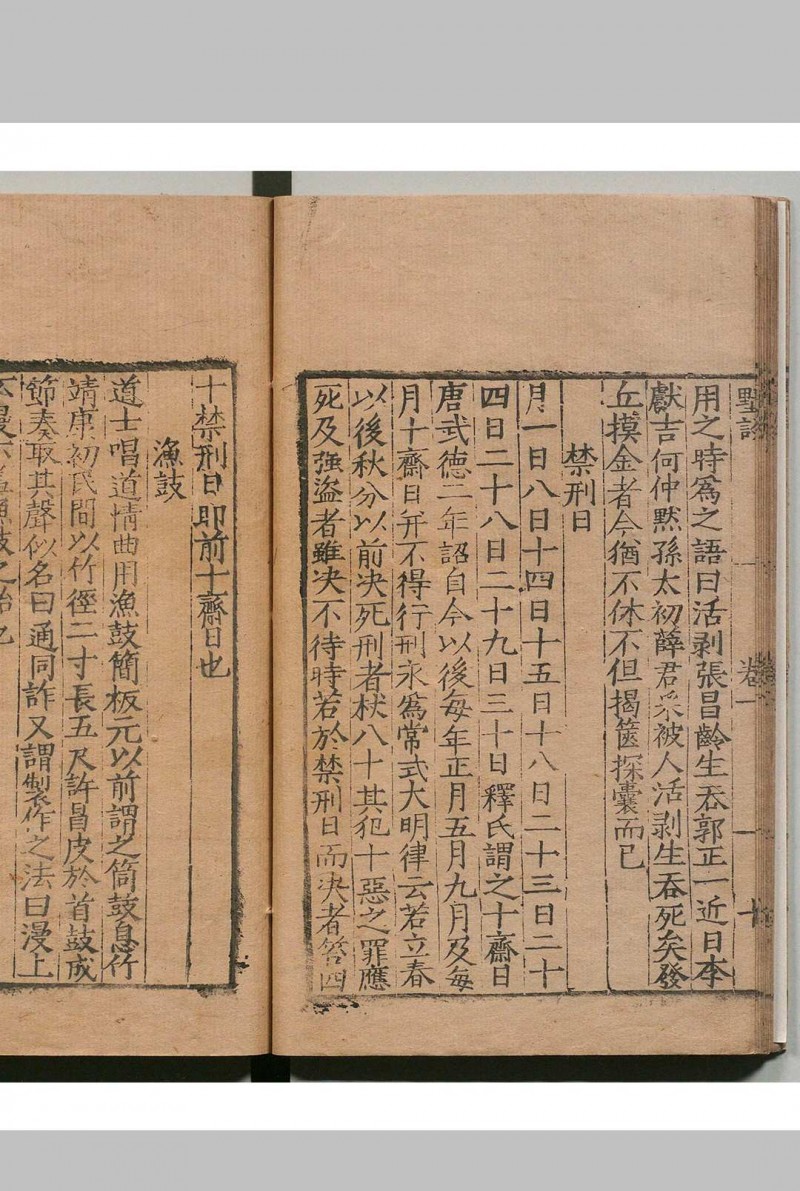 卷一
十
用之時爲之語曰活剥張昌齡生吞郭正一近日李
獻吉何仲黙孫太初薛君采被人活剥生吞死矣發
丘摸金者今猶不休不但揭篋探囊而已
禁刑日
月一日八日十四日十五日十八日二十三日二十
四日二十八日二十九日三十日釋氏謂之十齋日
唐武德二年詔自今以後每年正月五月九月及每
月十齋日并不得行刑永爲常式大明律云若立春
以後秋分以前决死刑者杖八十其犯十惡之罪應
死及强盗者雖决不待時若於禁刑日而决者笞四
十禁刑日即前十齋日也
漁鼓
道士唱道情曲用漁鼓簡板元以前謂之筒鼓息竹
靖康初民間以竹徑二寸長五尺許冐皮於首鼓成
節奏取其聲似名曰通同詐又謂製作之法曰漫上
不漫下
漁鼓之始也